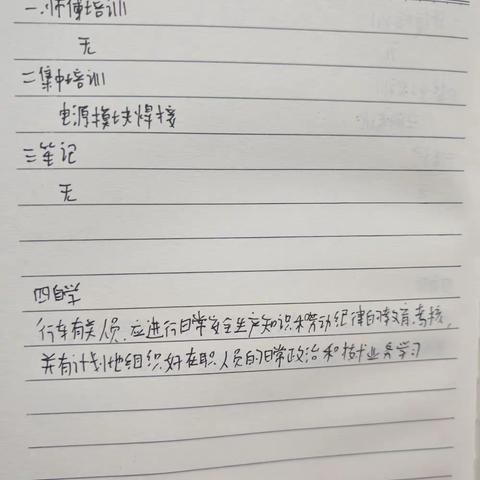 一.师傅培训
无
二集中培训
电源模块焊接
三笔记
无
四自学
行车有关人员,应进行日常安全生产知识和劳动纪律的教育、考核,
并有计划地组织好在职人员的日常政治和技术业务学习